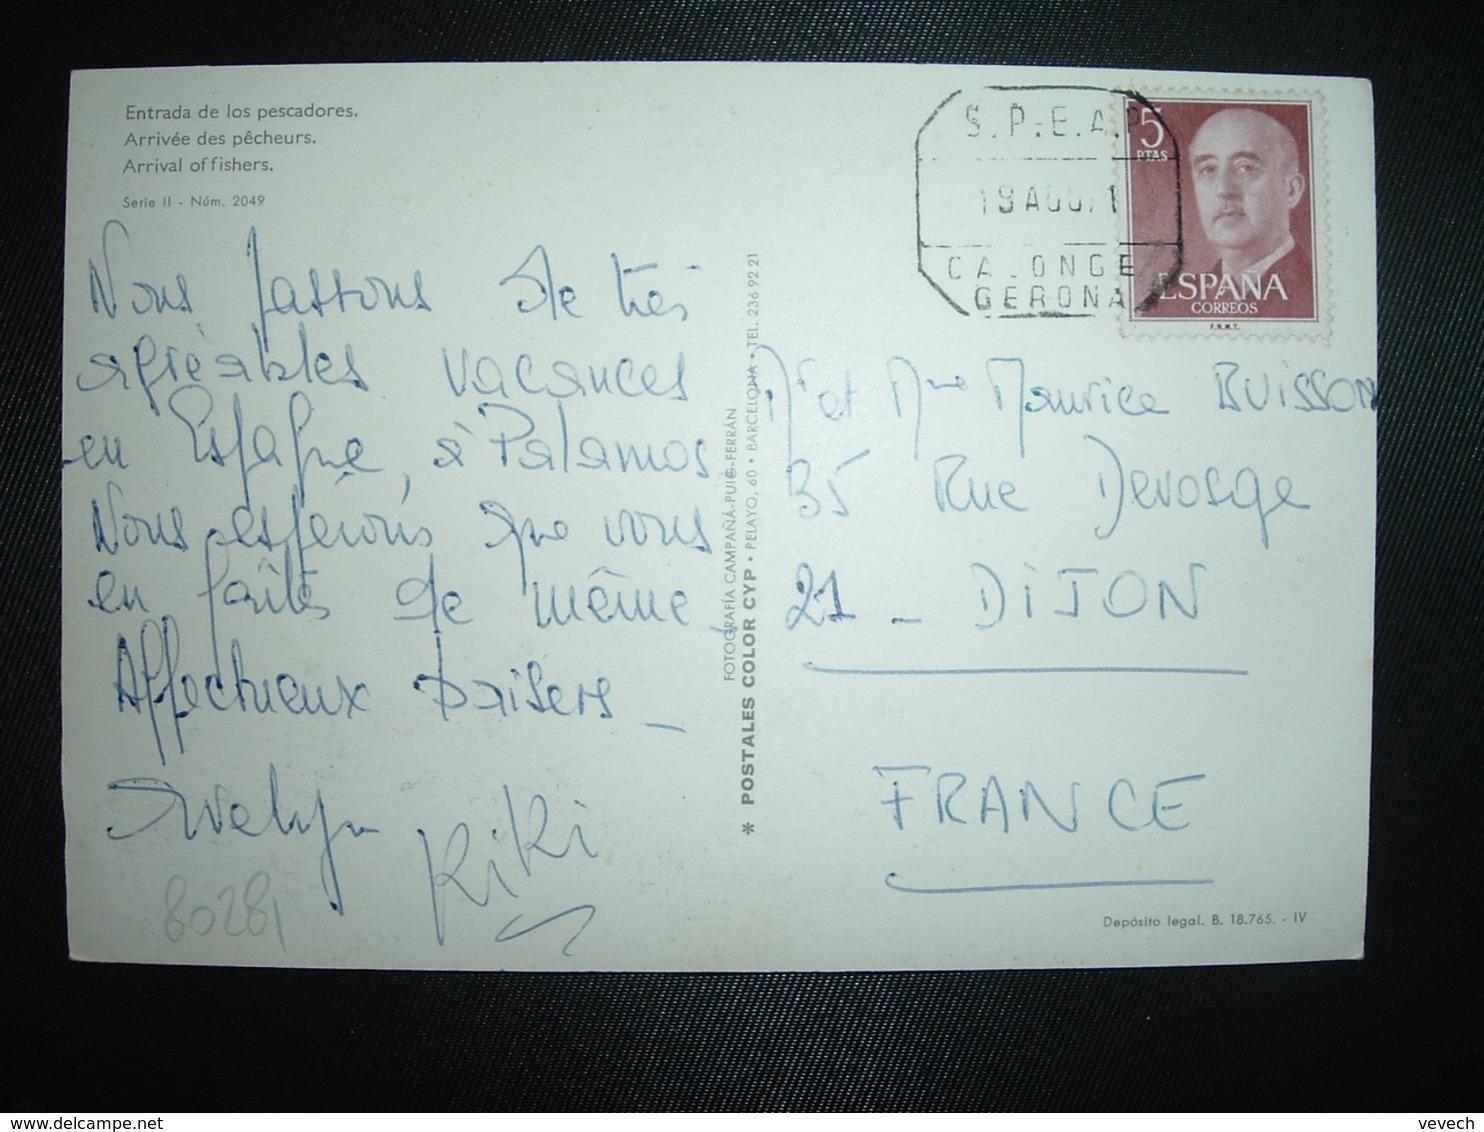 Entrada de los pescadores.
Arrivée des pêcheurs.
Arrival of fishers.
Serie II - Núm. 2049
Nous passons de très
agréables vacances
en Espagne, à Palamos
Nous espérons que vous
en faîtes de même.
Affectueux baisers _
Evelyn
KiKi
80281
FOTOGRAFÍA CAMPAÑÁ-PUIG-FERRÁN
* POSTALES COLOR CYP • PELAYO, 60 • BARCELONA • TEL. 236 92 21
S.P.E.A.P
19 AGO 71
CALONGE
GERONA
5
PTAS
ESPAÑA
CORREOS
F.N.M.T.
Mr et Mme Maurice BUISSON
35 Rue Devosge
21 _ DIJON
FRANCE
Depósito legal. B. 18.765. - IV
vevech